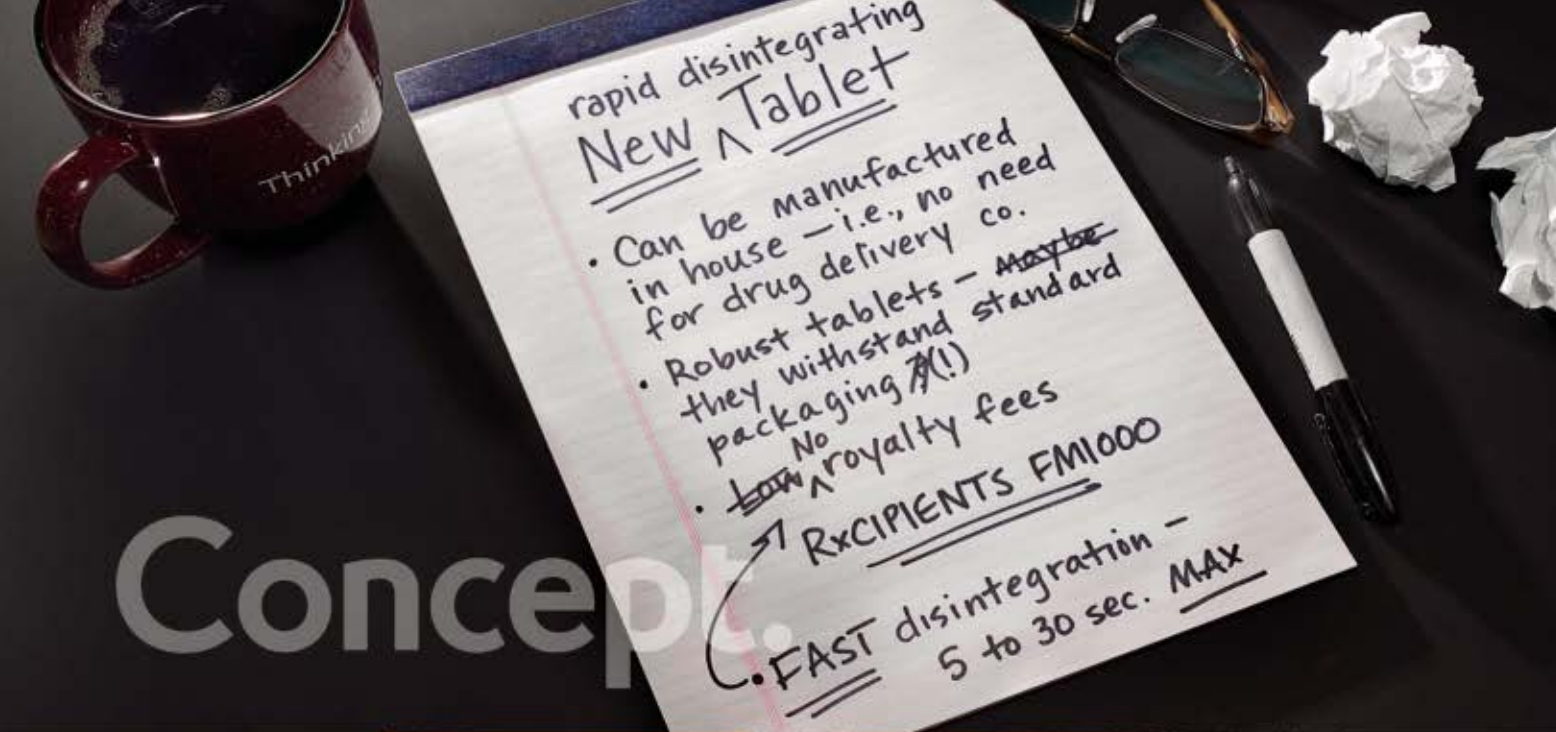 Thinking
rapid disintegrating
New ^ Tablet
• Can be manufactured
in house – i.e., no need
for drug delivery co.
• Robust tablets – Maybe
they withstand standard
packaging (!)
No
• Low ^ royalty fees
RxCIPIENTS FM1000
• FAST disintegration –
5 to 30 sec. MAX
Concept.